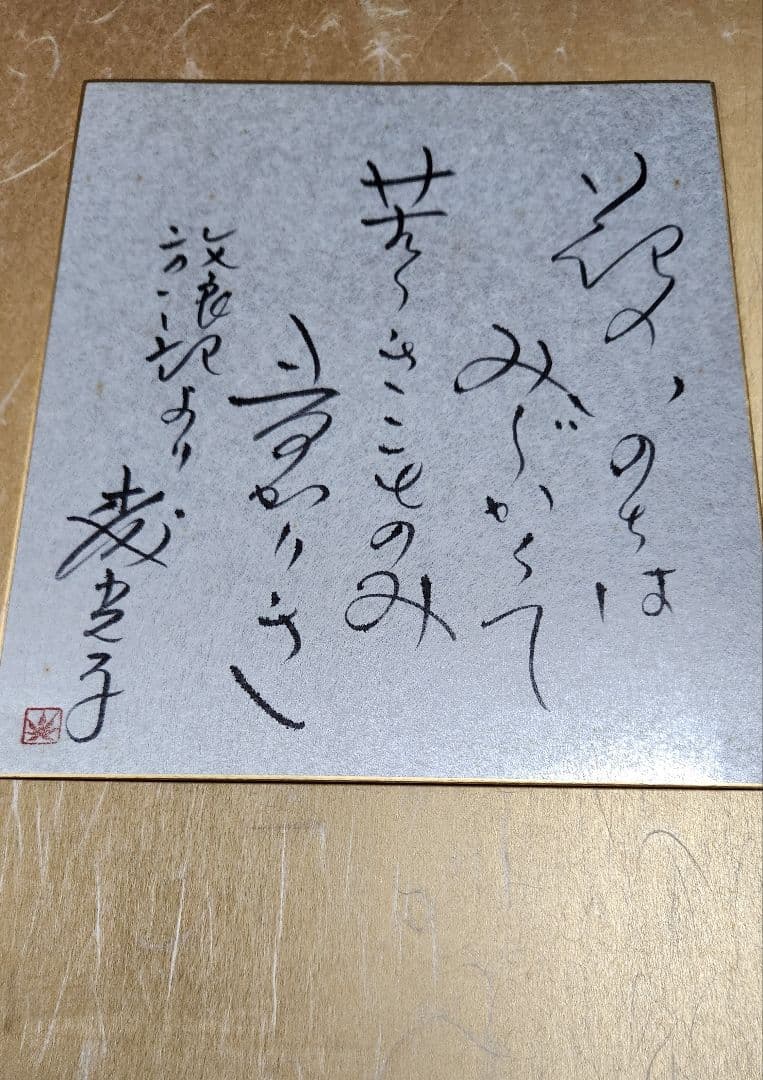 花のいのちは
みじかくて
苦しきことのみ
多かりき
放浪記より
森光子